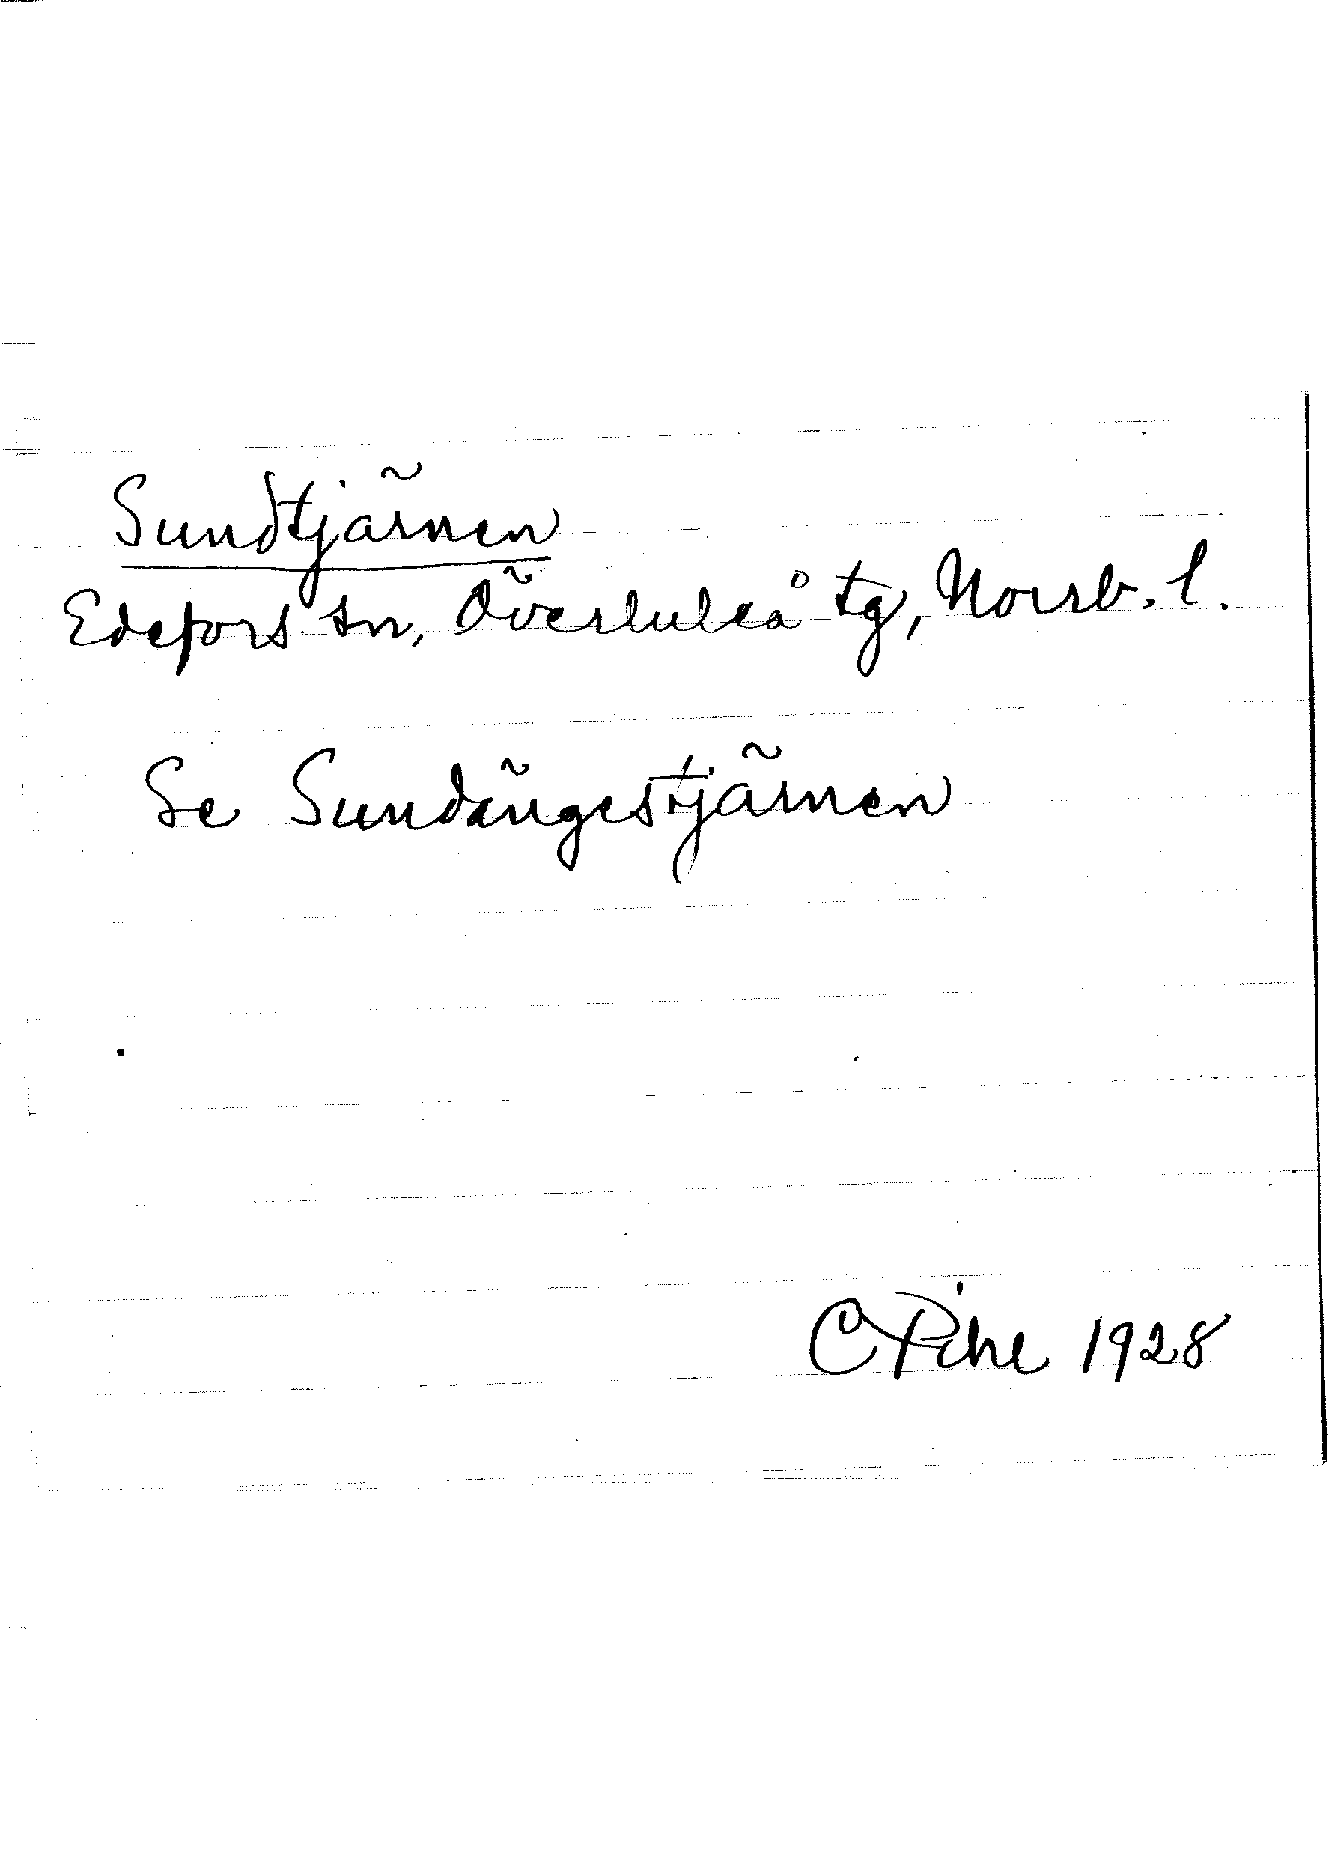 Sundtjärnen
Edefors sn, Överluleå tg, Norrb. l.
Se Sundängestjärnen
C Pihl 1928